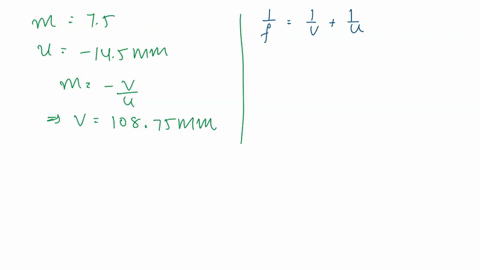 m = 7.5
u = -14.5 mm
m = - v/u
⇒ v = 108.75 mm
1/f = 1/v + 1/u